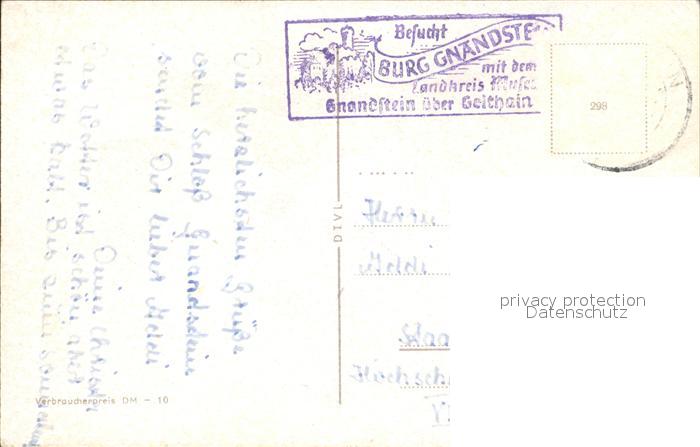 Besucht
BURG GNANDSTE
mit dem
Landkreis Muse
Gnandstein über Geithain
298
Die herzlichsten Grüße
vom Schloß Gnandstein
sendet Dir lieber Addi
Deine
Das Wetter ist schön, aber
etwas kalt. Bis zum
DIVL
Herrn
Addi
Staa
Hochsch
privacy protection
Datenschutz
Verbraucherpreis DM - 10